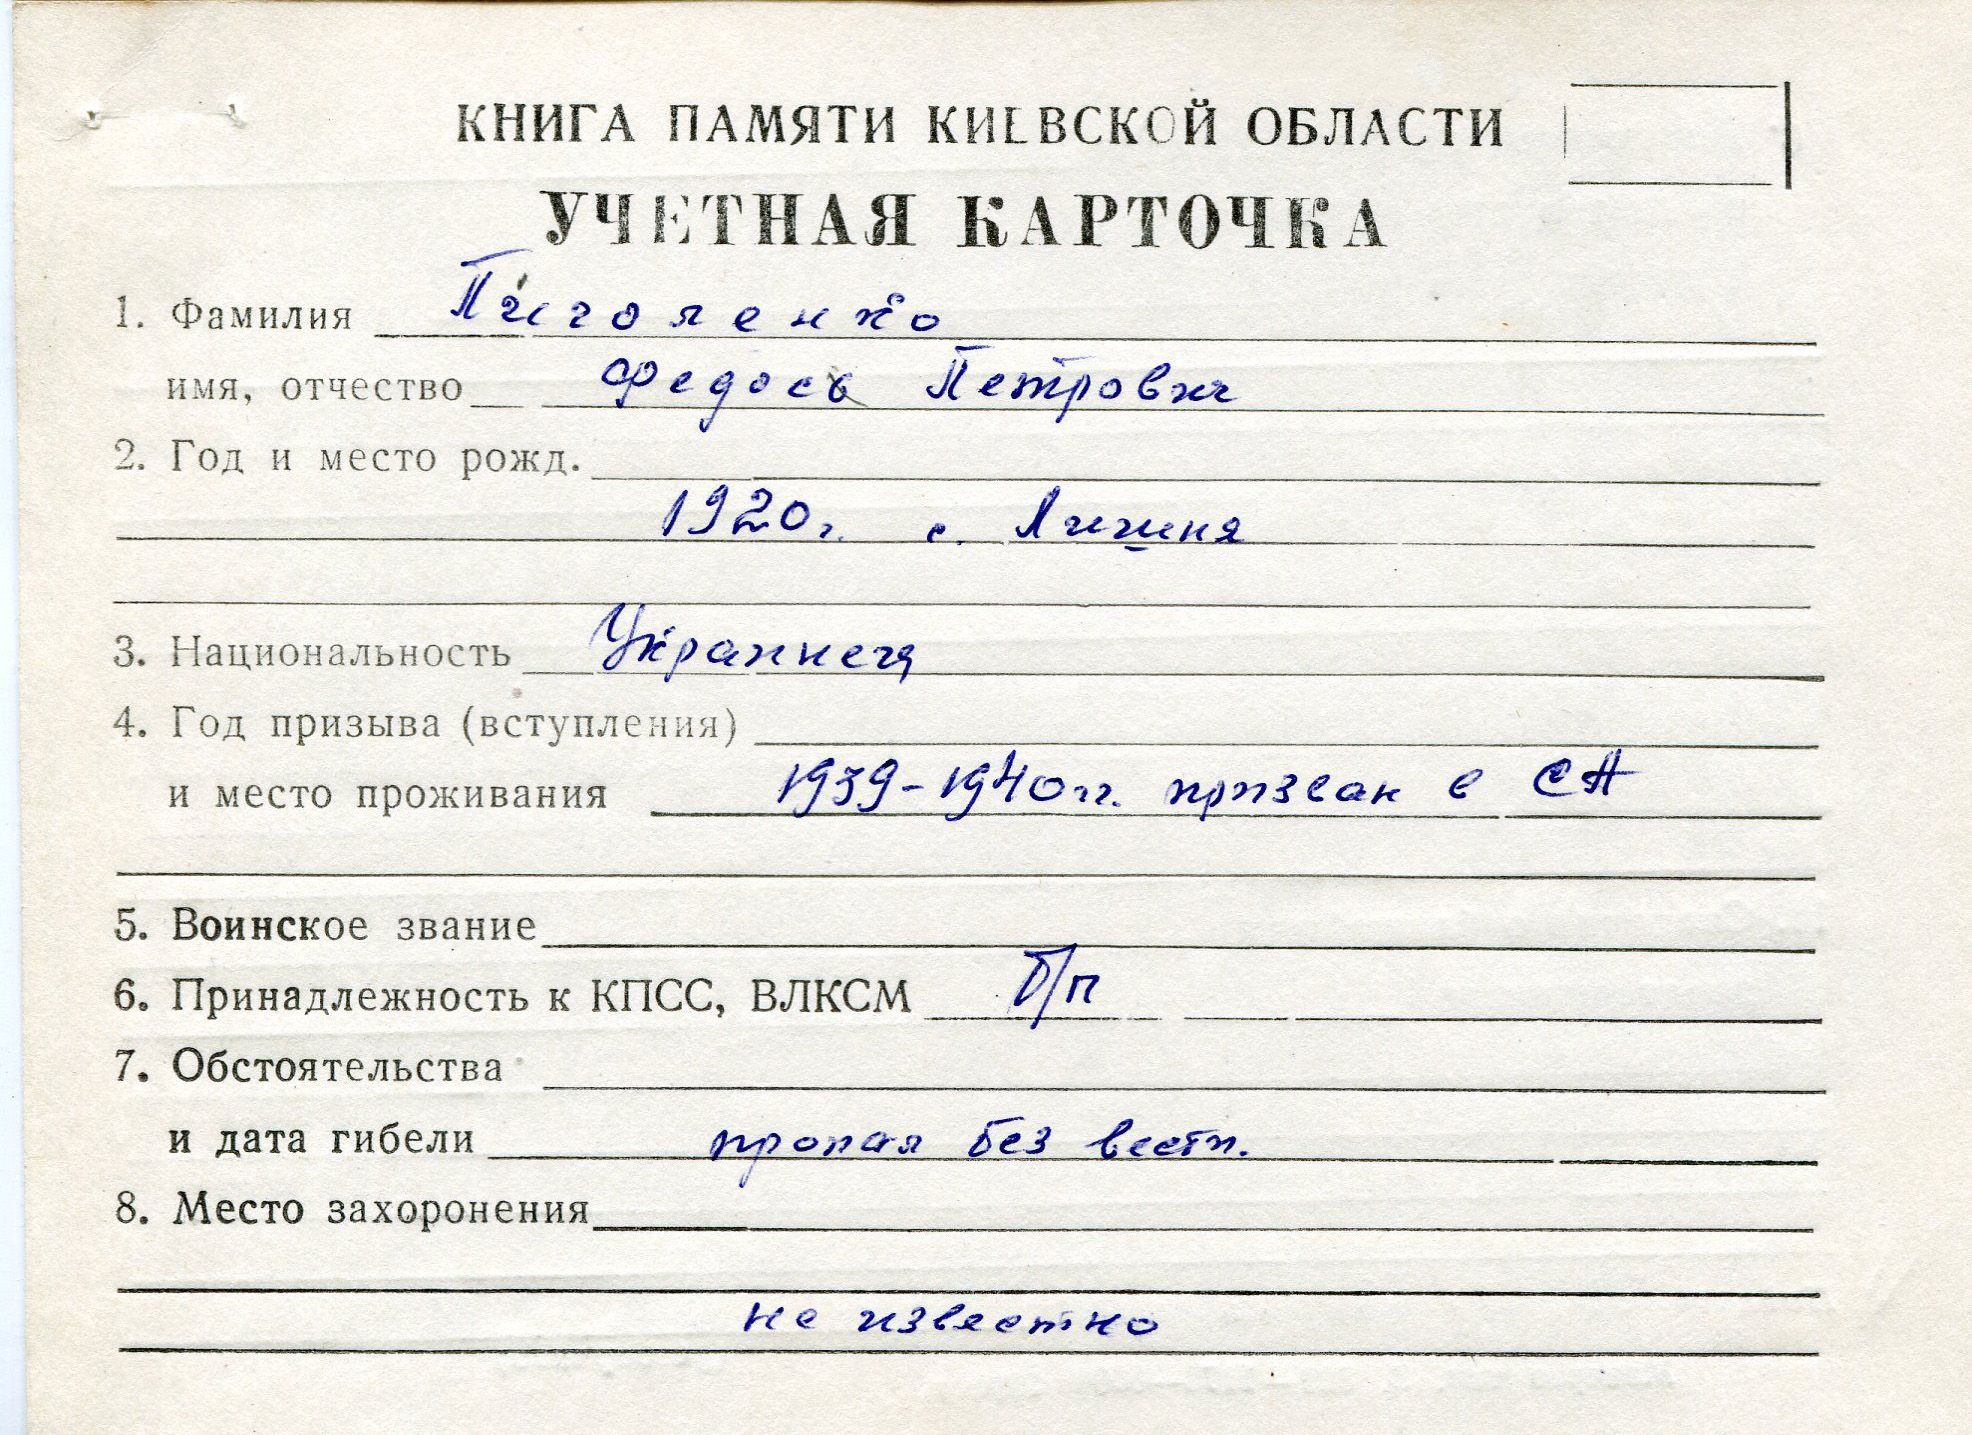 КНИГА ПАМЯТИ КИЕВСКОЙ ОБЛАСТИ
УЧЕТНАЯ КАРТОЧКА
1. Фамилия Пиголенко
имя, отчество Федось Петрович
2. Год и место рожд.
1920г. с. Личшня
3. Национальность Украинец
4. Год призыва (вступления)
и место проживания 1939-1940гг. призван в СА
5. Воинское звание
6. Принадлежность к КПСС, ВЛКСМ б/п
7. Обстоятельства
и дата гибели пропал без вести.
8. Место захоронения
не известно